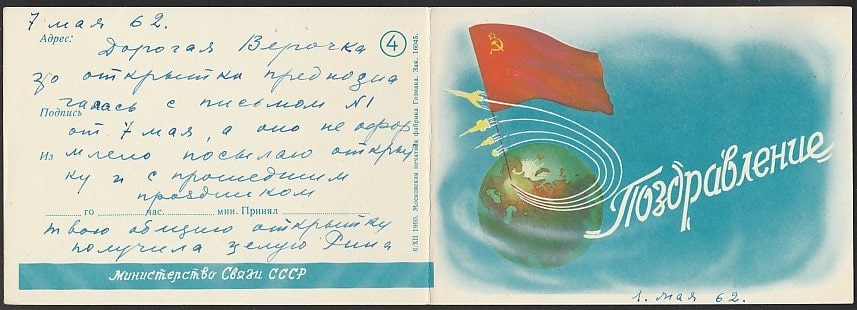 7 мая 62.
Адрес:
Дорогая Верочка
4
эо открытка предназна
чалась с письмом N1
Подпись
от 7 мая, а оно не офор
Из
млено посылаю откры
ку и с прошедшим
праздником
го час. мин. Принял
твою общую открытку
получила целую Рина
Министерство Связи СССР
6/XII 1960. Московская печатная фабрика Гознака. Зак. 16045.
Поздравление
1. мая 62.